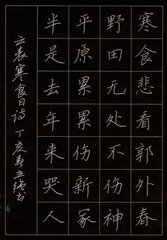 寒食悲看郭外春
野田无处不伤神
平原累累添新冢
半是去年来哭人
云表寒食日诗 丁亥